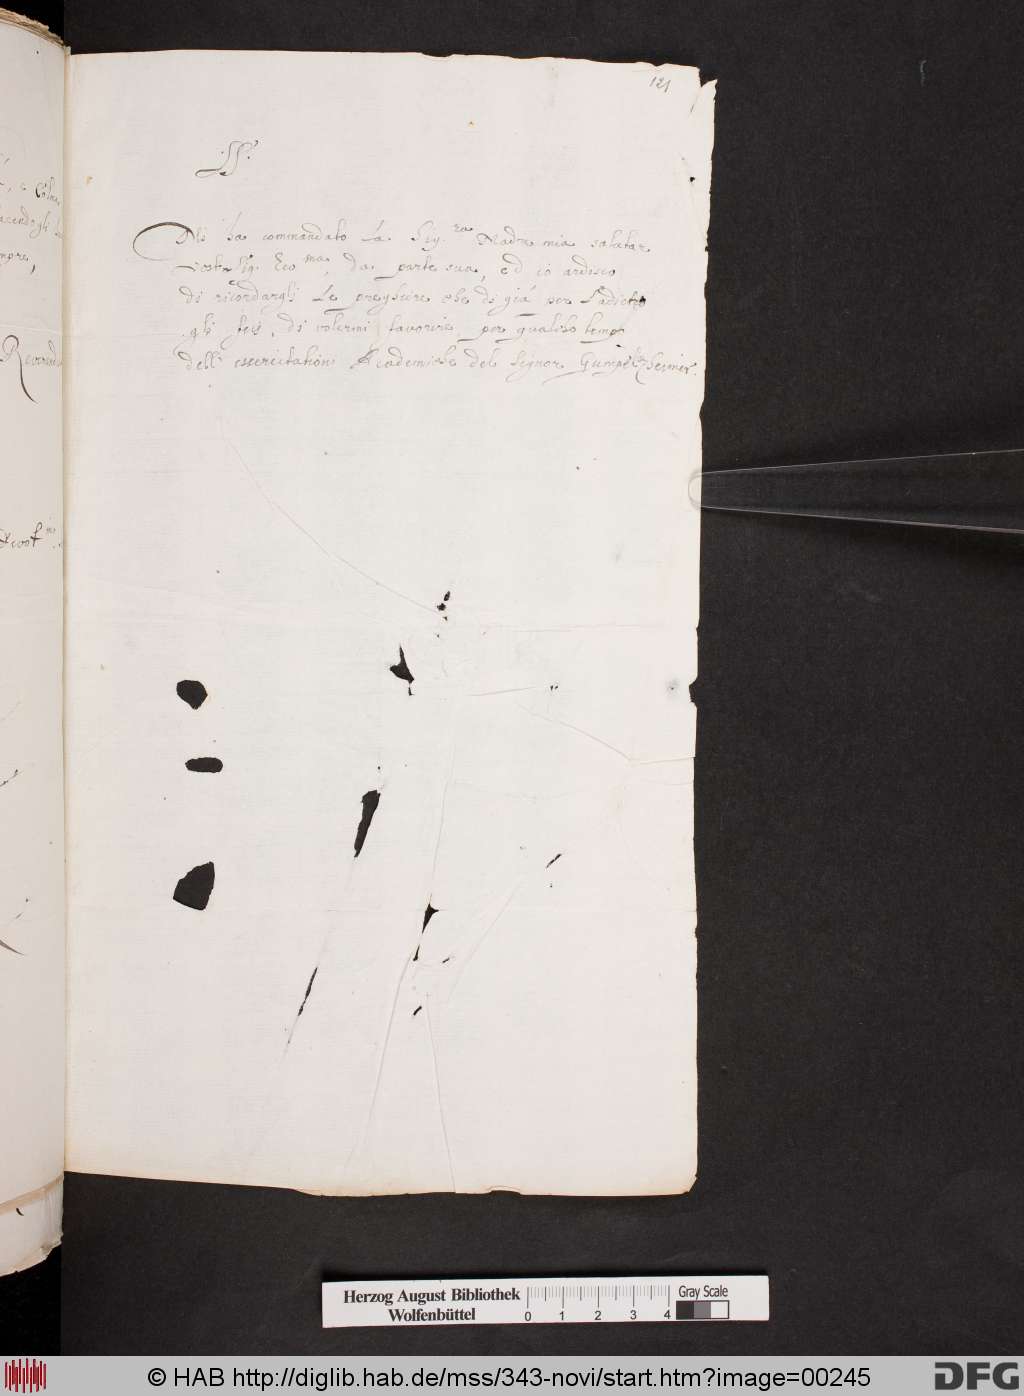 121
Mi ha commandato La Sig.ra Madre mia salutar
Vostr Sig. Ecc.ma, da parte sua, ed io ardisco
di ricordargli Le preghiere che di già per L'adietro
gli feci, di volermi favorire, per qualche tempo
dell' essercitationi Academiche del Signor Gumpelzheimer.
Reverend
Herzog August Bibliothek
Wolfenbüttel
0 1 2 3 4
Gray Scale
© HAB http://diglib.hab.de/mss/343-novi/start.htm?image=00245
DFG